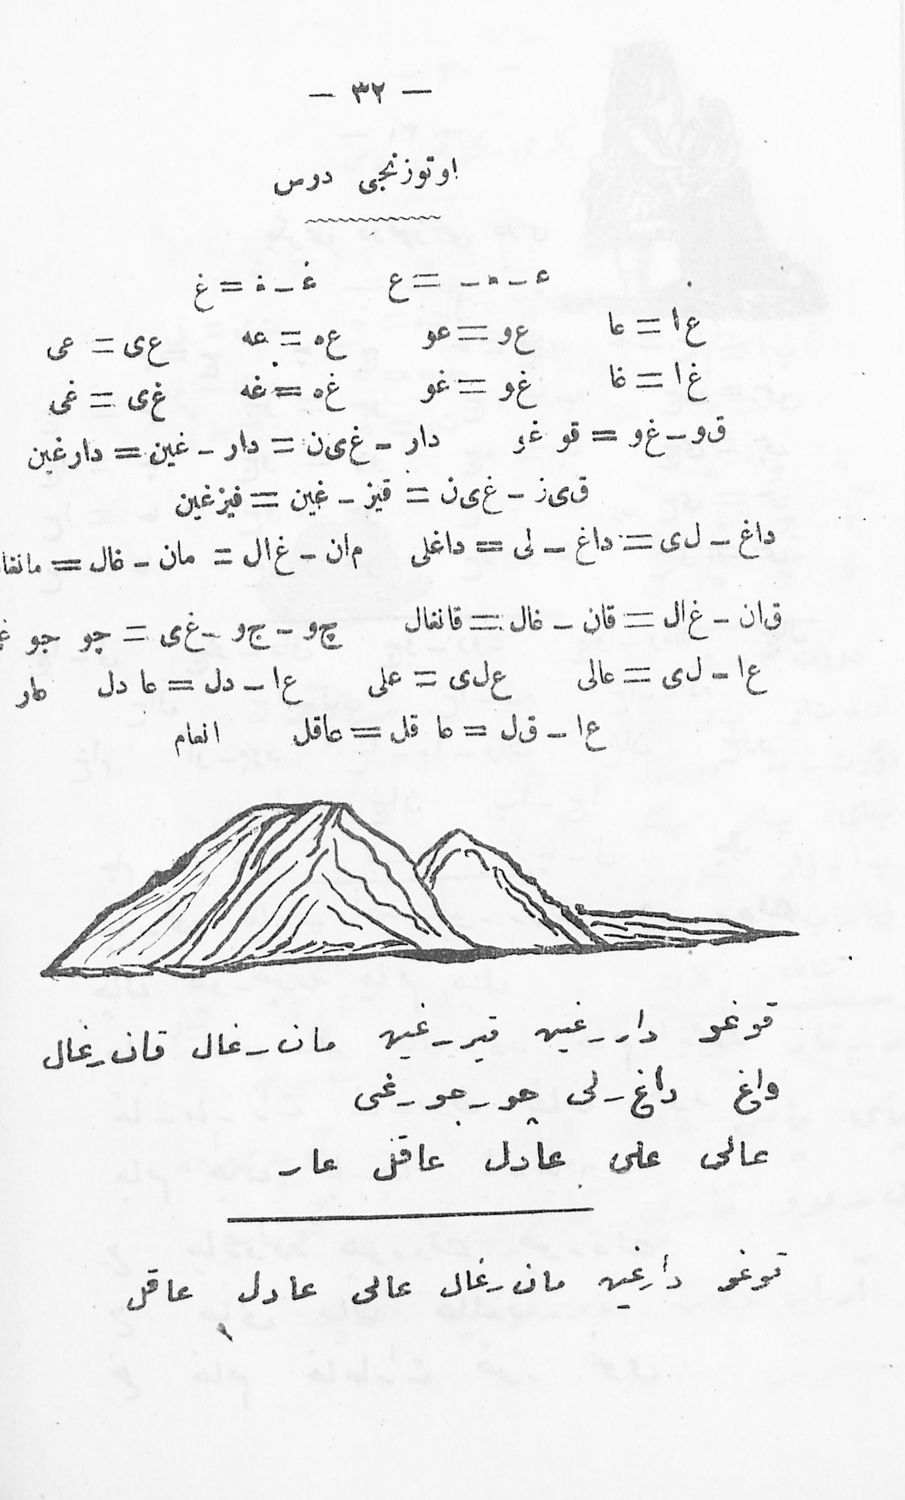 — ٣٢ —
اوتوزنجی درس
ء ـ ـعـ ـ = ع   غ ـ ـغـ = غ
ع‌ا = عا   ع‌و = عو   ع‌ه = عه   ع‌ی = عی
غ‌ا = غا   غ‌و = غو   غ‌ه = غه   غ‌ی = غی
ق‌و ـ غ‌و = قو غو   دار ـ غ‌ی‌ن = دار ـ غین = دارغین
ق‌ی‌ز ـ غ‌ی‌ن = قیز ـ غین = قیزغین
داغ ـ ل‌ی = داغ ـ لی = داغلی   م‌ان ـ غ‌ال = مان ـ غال = مانغال
ق‌ان ـ غ‌ال = قان ـ غال = قانغال   چ‌و ـ ج‌و ـ غ‌ی = چو جو
ع‌ا ـ ل‌ی = عالی   ع‌ل‌ی = علی   ع‌ا ـ دل = عا دل   عار
ع‌ا ـ ق‌ل = عا قل = عاقل   انعام
قوغو دار ـ غین قیر ـ غین مان ـ غال قان ـ غال
داغ ـ لی چو ـ جو ـ غی
عالی علی عادل عاقل عار
قوغو دارغین مان ـ غال عالی عادل عاقل